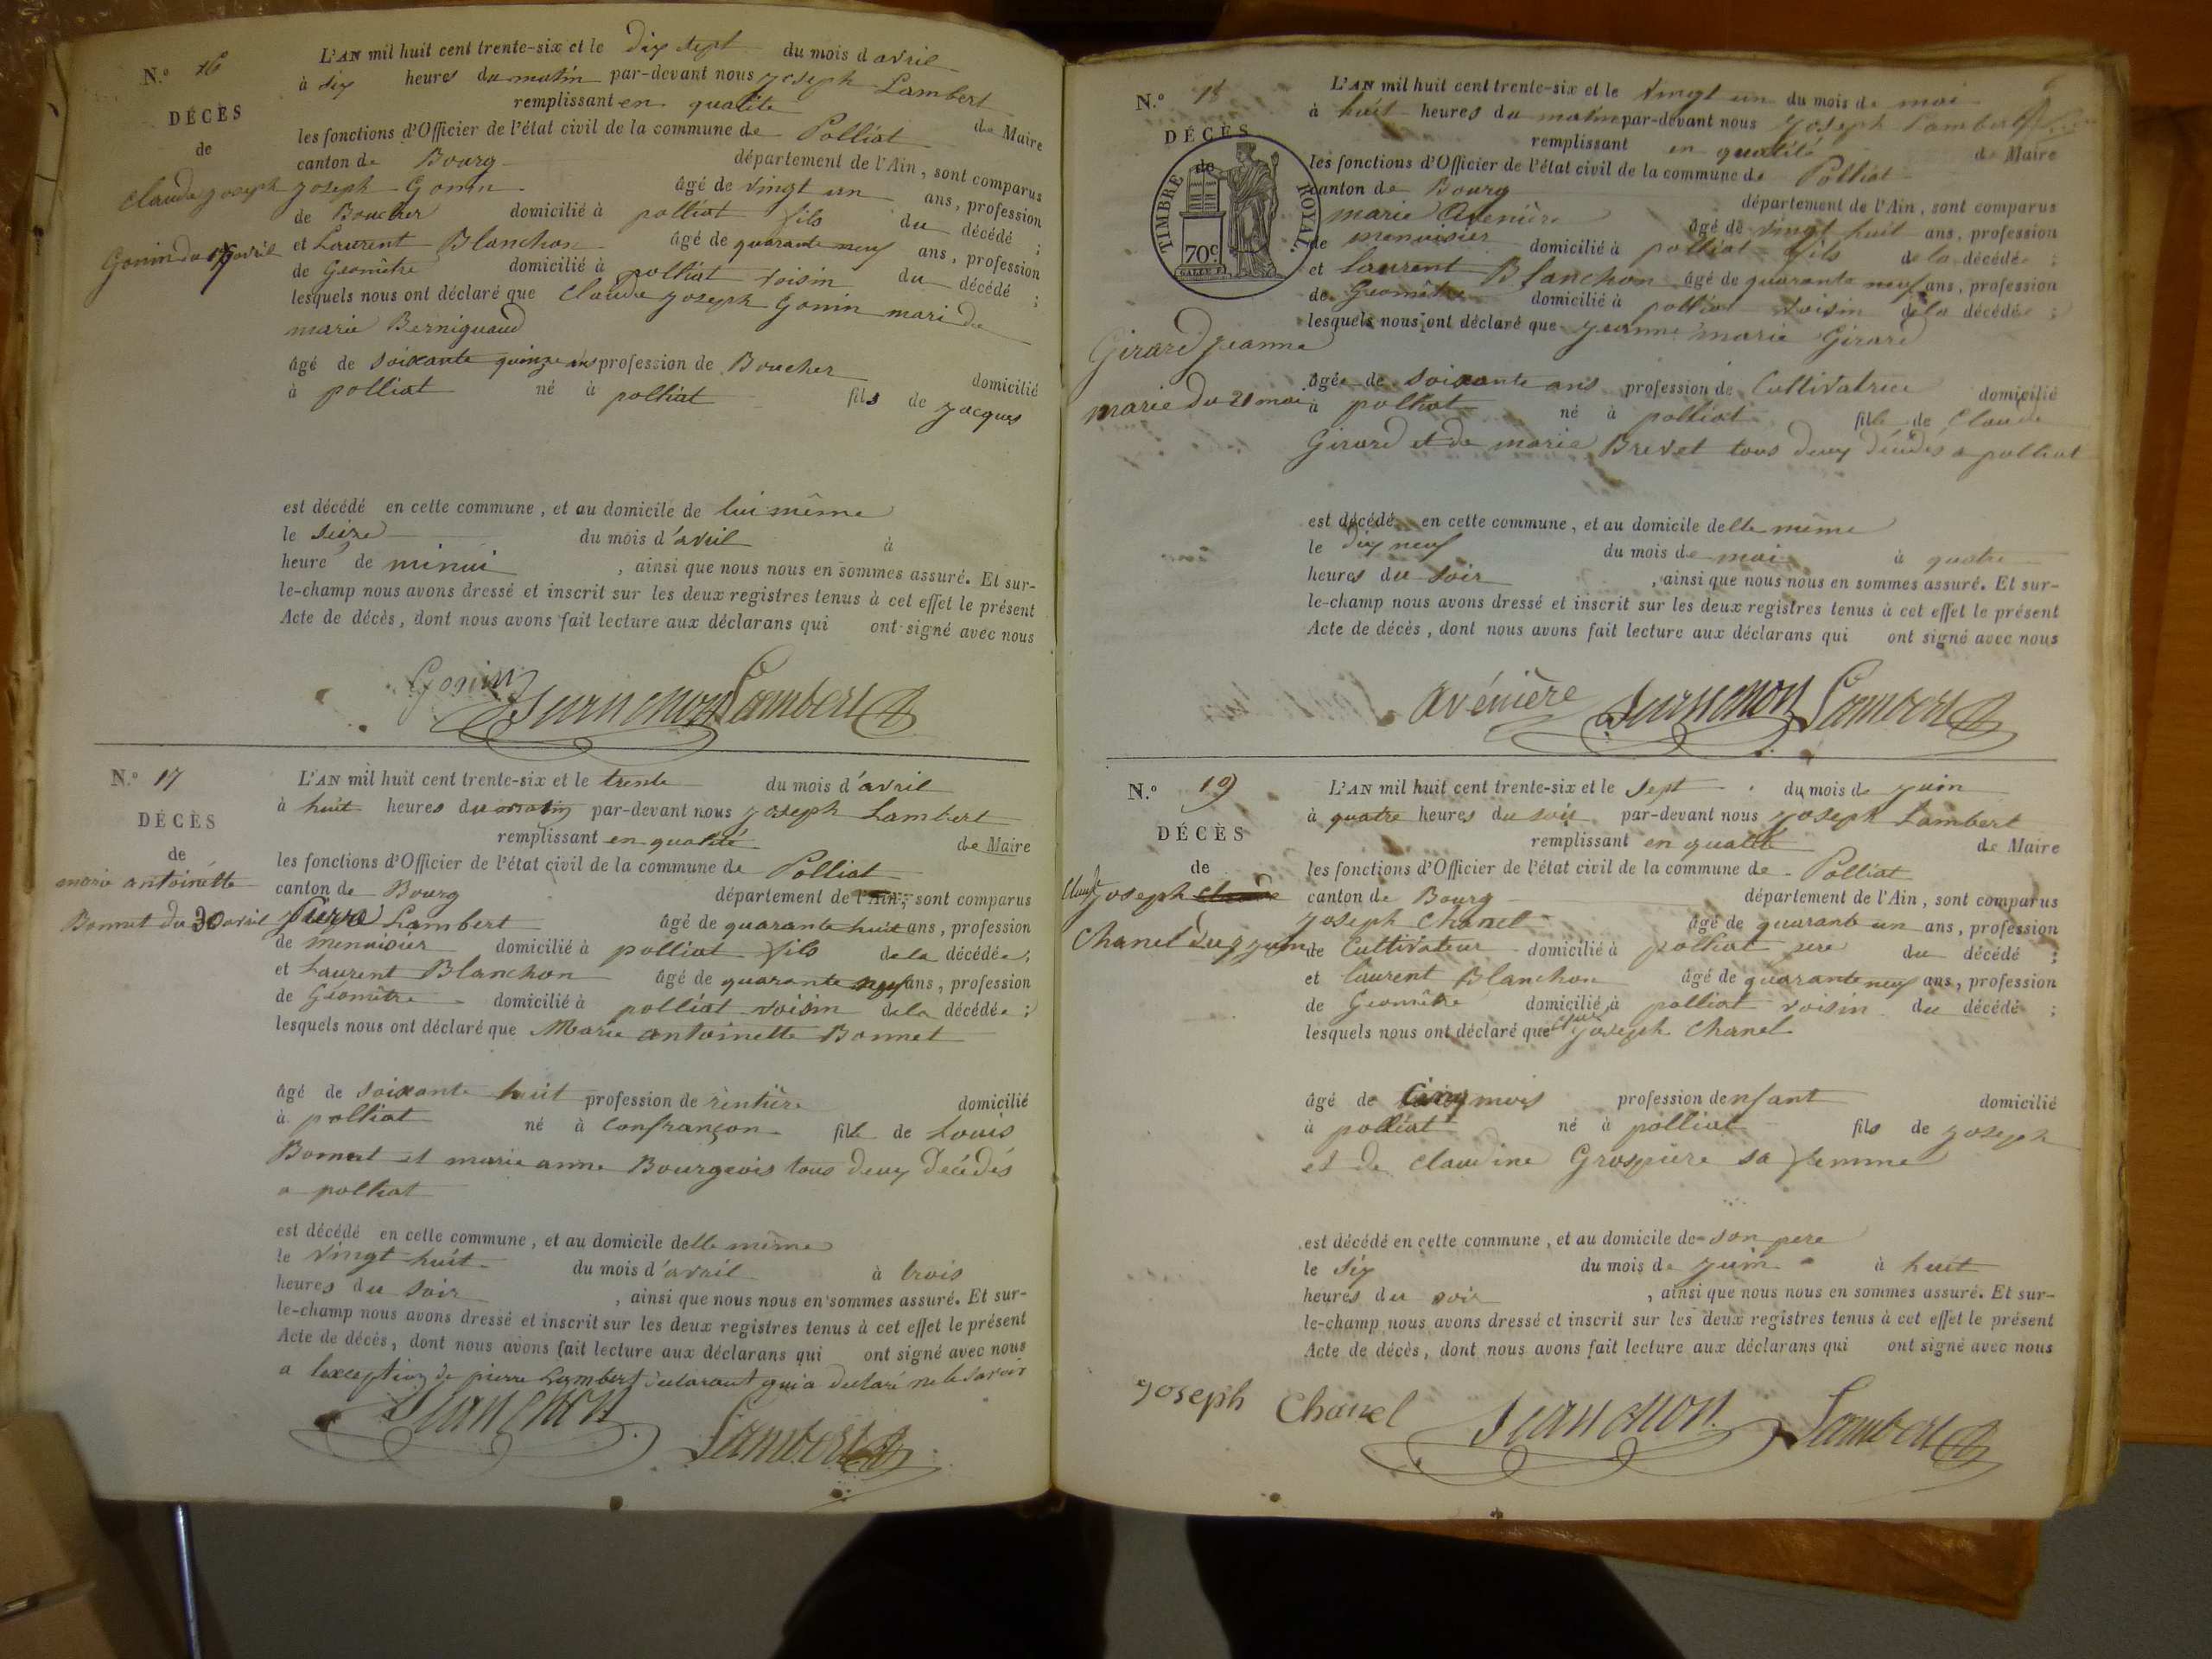 N.º 16
DÉCÈS
de
Claude joseph
Gonin du 17 avril
L'AN mil huit cent trente-six et le dix sept du mois d avril
à six heures du matin par-devant nous joseph Lambert
remplissant en qualité de Maire
les fonctions d'Officier de l'état civil de la commune de Polliat
canton de Bourg département de l'Ain, sont comparus
joseph Gonin âgé de vingt un ans, profession
de Boucher domicilié à polliat fils du décédé ;
et Laurent Blanchon âgé de quarante neuf ans, profession
de Geomètre domicilié à polliat voisin du décédé ;
lesquels nous ont déclaré que Claude joseph Gonin mari de
marie Berniguaud
âgé de soixante quinze ans profession de Boucher domicilié
à polliat né à polliat fils de jacques
est décédé en cette commune, et au domicile de lui même
le seize du mois d'avril à
heure de minui , ainsi que nous nous en sommes assuré. Et sur-
le-champ nous avons dressé et inscrit sur les deux registres tenus à cet effet le présent
Acte de décès, dont nous avons fait lecture aux déclarans qui ont signé avec nous
Gonin Blanchon Lambert
N.º 17
DÉCÈS
de
marie antoinette
Bonnet du 30 avril
L'AN mil huit cent trente-six et le trente du mois d'avril
à huit heures du matin par-devant nous joseph Lambert
remplissant en qualité de Maire
les fonctions d'Officier de l'état civil de la commune de Polliat
canton de Bourg département de l'Ain, sont comparus
pierre Lambert âgé de quarante huit ans, profession
de menuisier domicilié à polliat fils de la décédée ;
et Laurent Blanchon âgé de quarante neuf ans, profession
de Géomètre domicilié à polliat voisin de la décédée ;
lesquels nous ont déclaré que Marie antoinette Bonnet
âgé de soixante huit profession de rentière domicilié
à polliat né à Confrançon fille de Louis
Bonnet et marie anne Bourgeois tous deux décédés
a polliat
est décédé en cette commune, et au domicile delle même
le vingt huit du mois d'avril à trois
heures du soir , ainsi que nous nous en sommes assuré. Et sur-
le-champ nous avons dressé et inscrit sur les deux registres tenus à cet effet le présent
Acte de décès, dont nous avons fait lecture aux déclarans qui ont signé avec nous
a lexception de pierre Lambert déclarant qui a déclaré ne le savoir
Blanchon Lambert
N.º 18
DÉCÈS
de
TIMBRE ROYAL
70c
Girard jeanne
marie du 21 mai
L'AN mil huit cent trente-six et le vingt un du mois de mai
à huit heures du matin par-devant nous joseph Lambert
remplissant en qualité de Maire
les fonctions d'Officier de l'état civil de la commune de Polliat
canton de Bourg département de l'Ain, sont comparus
marie Avenière âgé de vingt huit ans, profession
de menuisier domicilié à polliat fils de la décédée ;
et Laurent Blanchon âgé de quarante neuf ans, profession
de Geomètre domicilié à polliat voisin de la décédée ;
lesquels nous ont déclaré que jeanne marie Girard
âgée de soixante ans profession de Cultivatrice domicilié
à polliat né à polliat fille de Claude
Girard et de marie Brevet tous deux décédés a polliat
est décédé en cette commune, et au domicile delle même
le dix neuf du mois de mai à quatre
heures du soir , ainsi que nous nous en sommes assuré. Et sur-
le-champ nous avons dressé et inscrit sur les deux registres tenus à cet effet le présent
Acte de décès, dont nous avons fait lecture aux déclarans qui ont signé avec nous
Avénière Blanchon Lambert
N.º 19
DÉCÈS
de
Claude joseph Claude
Chanel du 7 juin
L'AN mil huit cent trente-six et le sept du mois de juin
à quatre heures du soir par-devant nous joseph Lambert
remplissant en qualité de Maire
les fonctions d'Officier de l'état civil de la commune de Polliat
canton de Bourg département de l'Ain, sont comparus
joseph Chanel âgé de quarante un ans, profession
de Cultivateur domicilié à polliat pere du décédé ;
et Laurent Blanchon âgé de quarante neuf ans, profession
de Geomètre domicilié à polliat voisin du décédé ;
lesquels nous ont déclaré que joseph Chanel
âgé de Cinq mois profession denfant domicilié
à polliat né à polliat fils de joseph
et de Claudine Grospiere sa femme
est décédé en cette commune, et au domicile de son pere
le six du mois de juin à huit
heures du soir , ainsi que nous nous en sommes assuré. Et sur-
le-champ nous avons dressé et inscrit sur les deux registres tenus à cet effet le présent
Acte de décès, dont nous avons fait lecture aux déclarans qui ont signé avec nous
joseph Chanel Blanchon Lambert